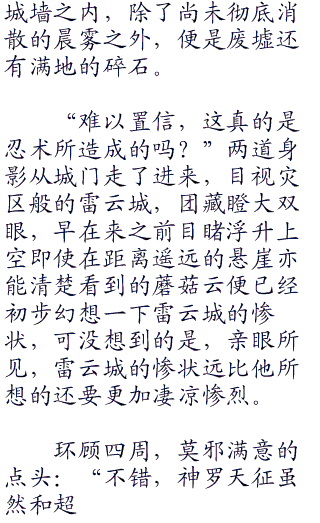 城墙之内，除了尚未彻底消
散的晨雾之外，便是废墟还
有满地的碎石。
“难以置信，这真的是
忍术所造成的吗？”两道身
影从城门走了进来，目视灾
区般的雷云城，团藏瞪大双
眼，早在来之前目睹浮升上
空即使在距离遥远的悬崖亦
能清楚看到的蘑菇云便已经
初步幻想一下雷云城的惨
状，可没想到的是，亲眼所
见，雷云城的惨状远比他所
想的还要更加凄凉惨烈。
环顾四周，莫邪满意的
点头：“不错，神罗天征虽
然和超